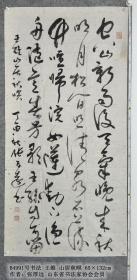 空山新雨後天氣晚来秋
明月松间照清泉石上流
竹喧歸浣女蓮動下漁
舟隨意春芳歇王孫自可留
王維山居秋暝 丁酉秋
84991号书法:王维 山居秋暝 68×132cm
作者:张厚远 山东省书法家协会会员